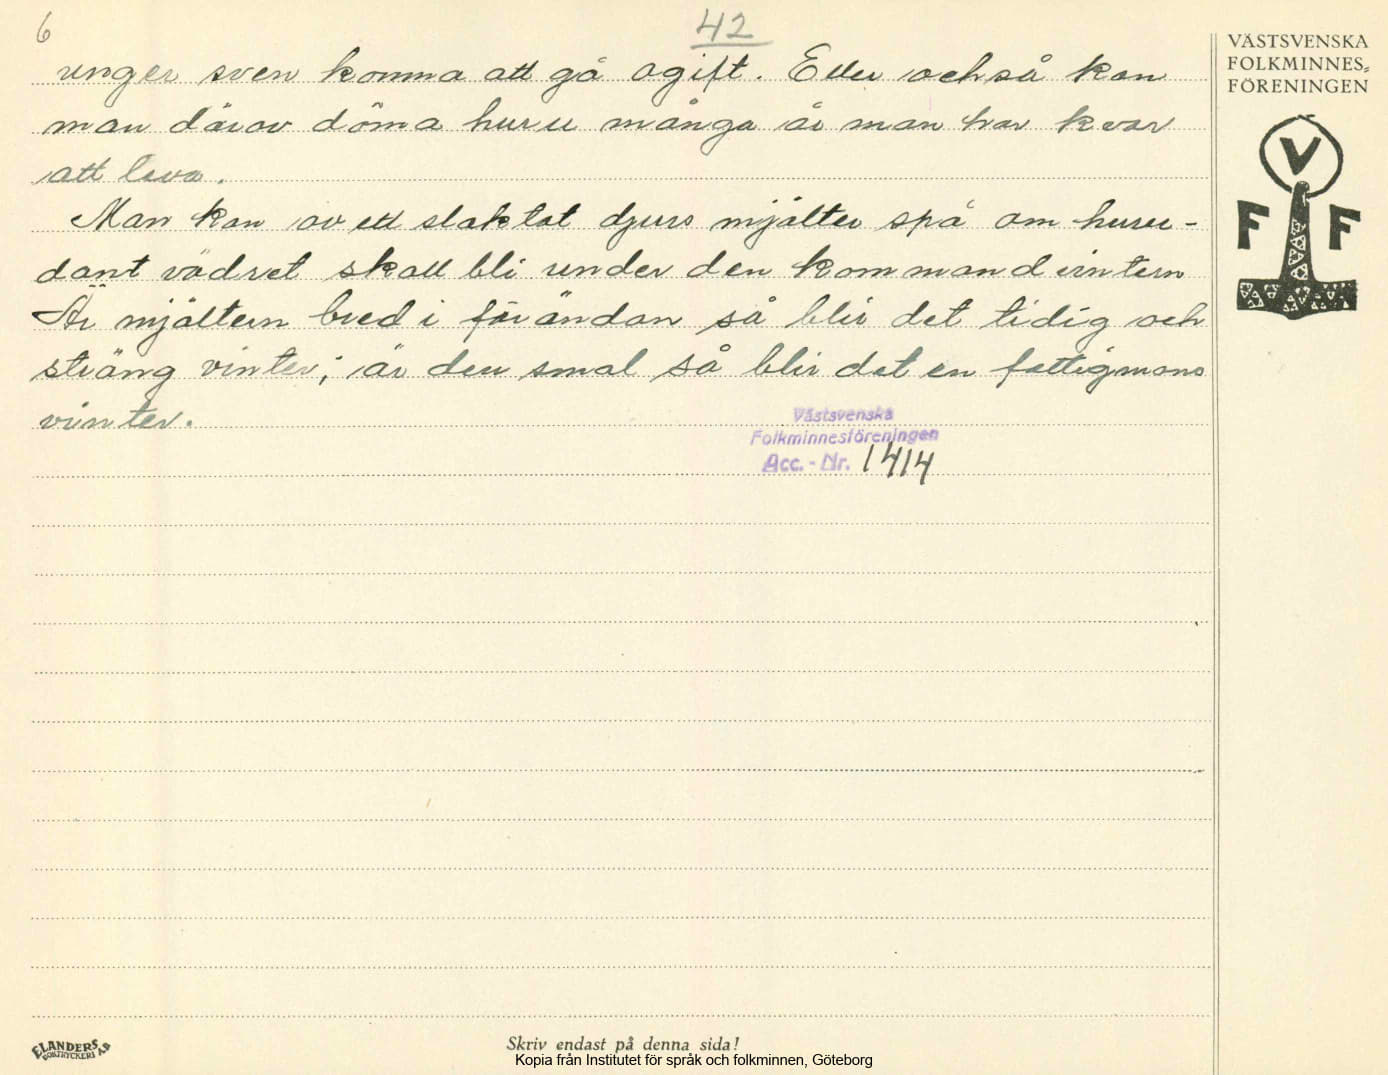 6
42
unger sven komma att gå ogift. Eller ochså kan
man därav döma huru många år man har kvar
att leva.
Man kan av ett slaktat djurs mjälter spå om huru-
dant vädret skall bli under den kommand vintern
Är mjältern bred i förändan så blir det tidig och
sträng vinter; är den smal så blir det en fattigmans
vinter.
Västsvenska
Folkminnesföreningen
Acc. - Nr. 1414
VÄSTSVENSKA
FOLKMINNES-
FÖRENINGEN
V
F F
ELANDERS
BOKTRYCKERI A.B
Skriv endast på denna sida!
Kopia från Institutet för språk och folkminnen, Göteborg